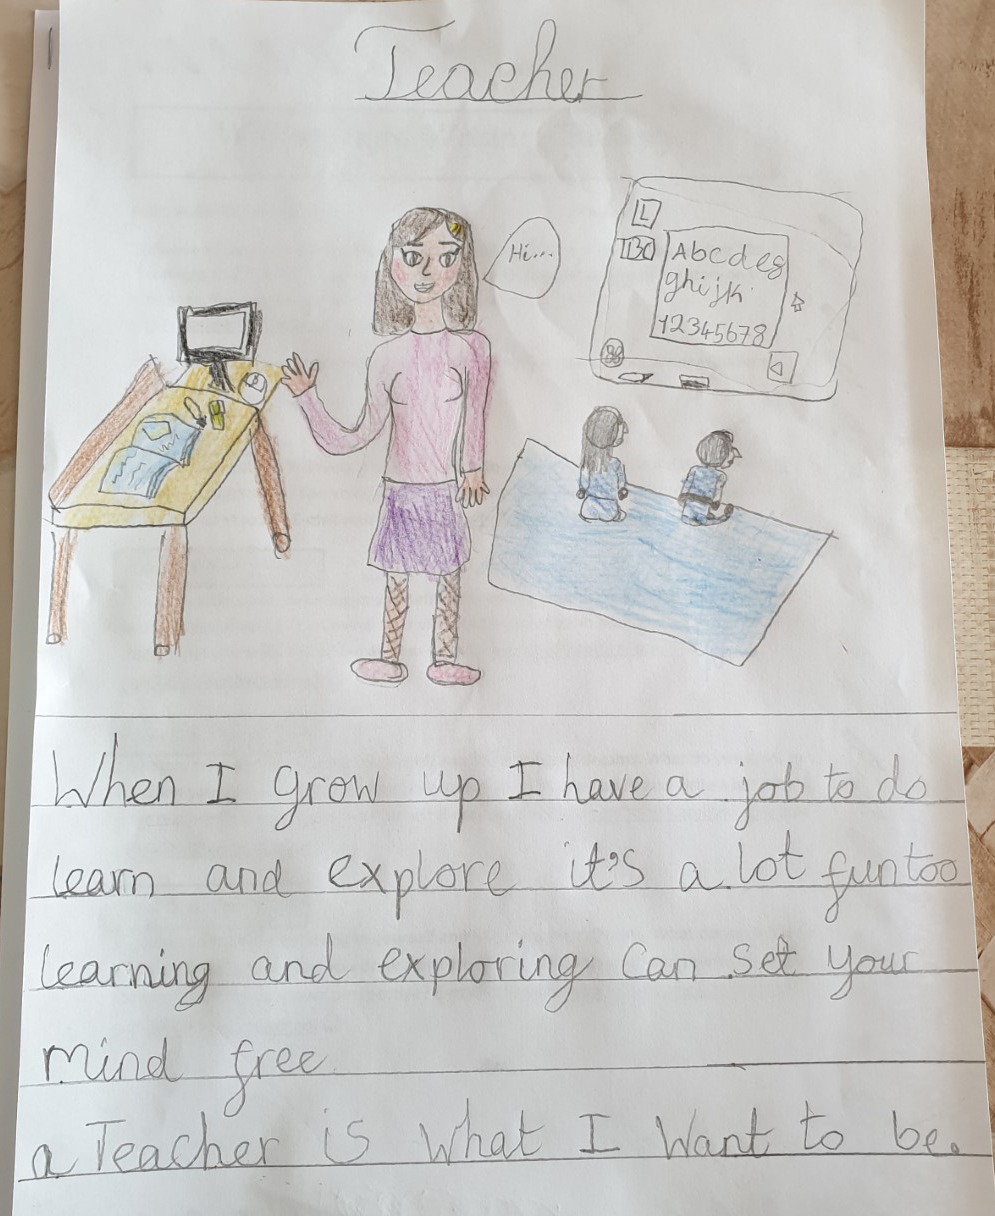 Teacher
Hi...
L
Abcdeg
ghijk
12345678
When I grow up I have a job to do
learn and explore it's a lot fun too
learning and exploring Can set your
mind free
a Teacher is what I want to be.